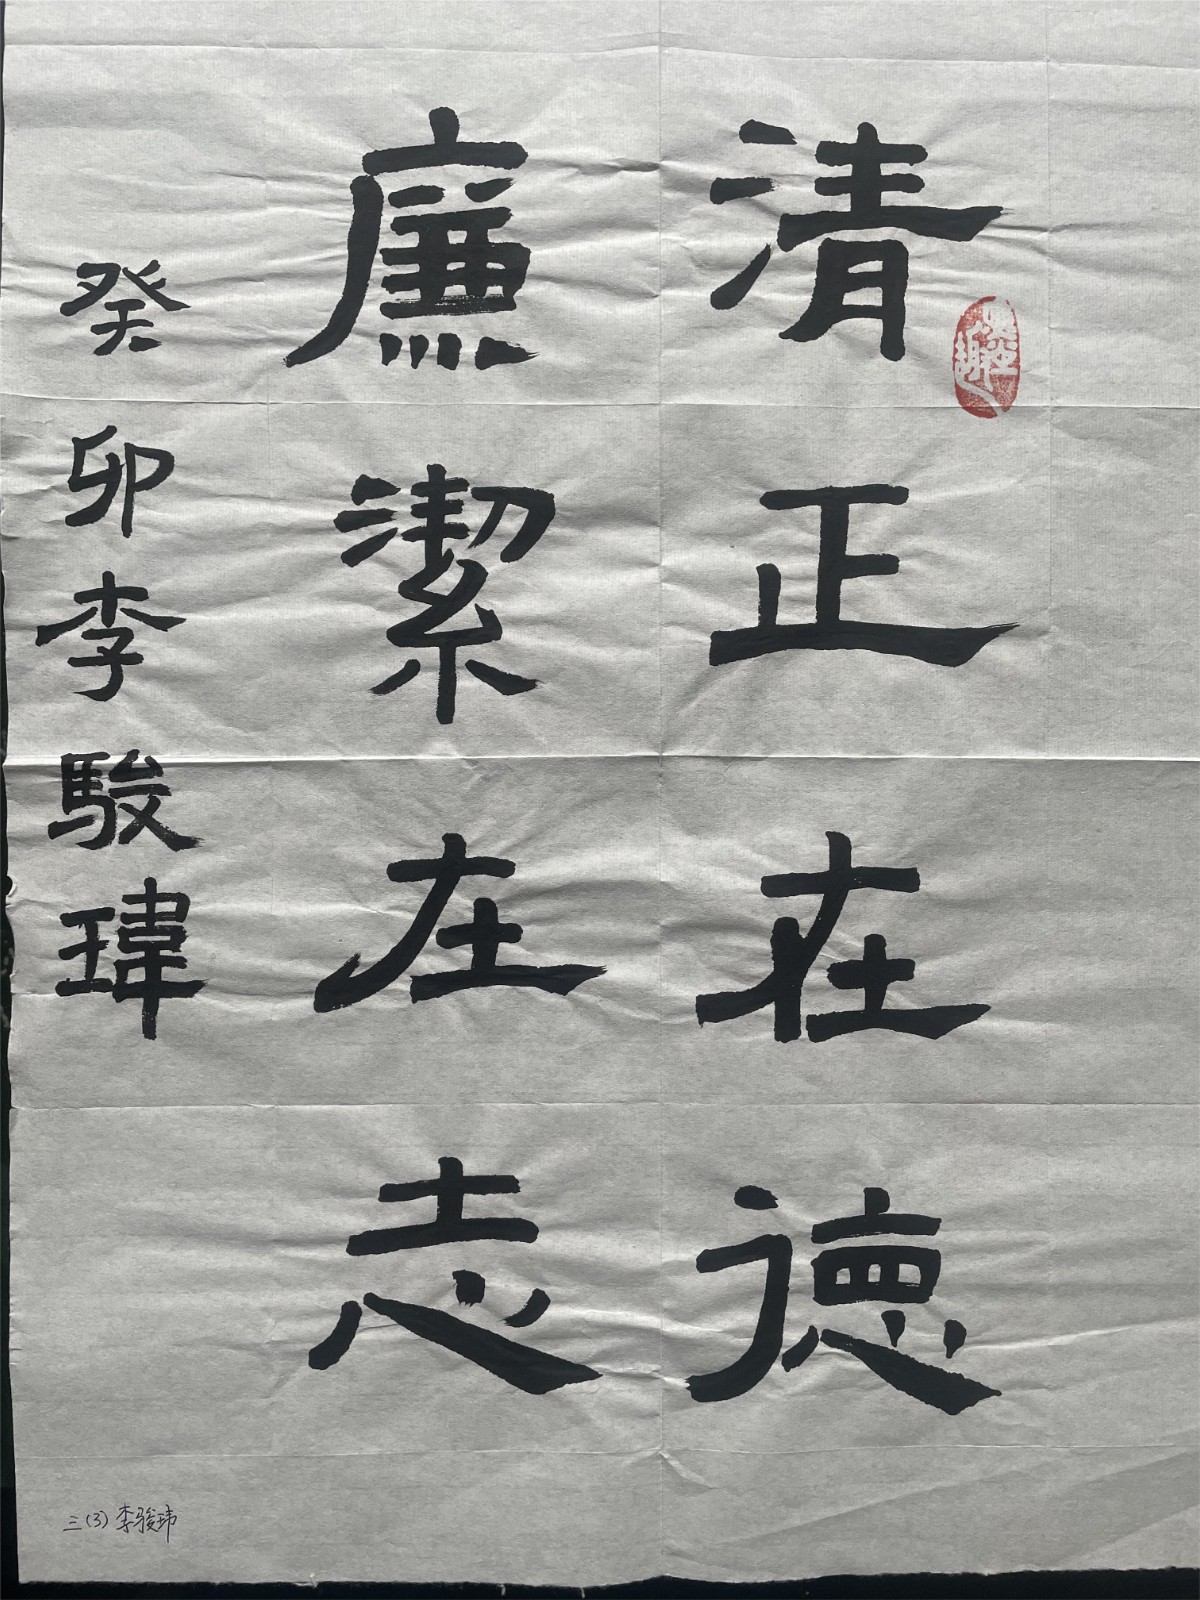 清正在德
廉潔在志
癸卯李駿瑋
三(3)李骏玮